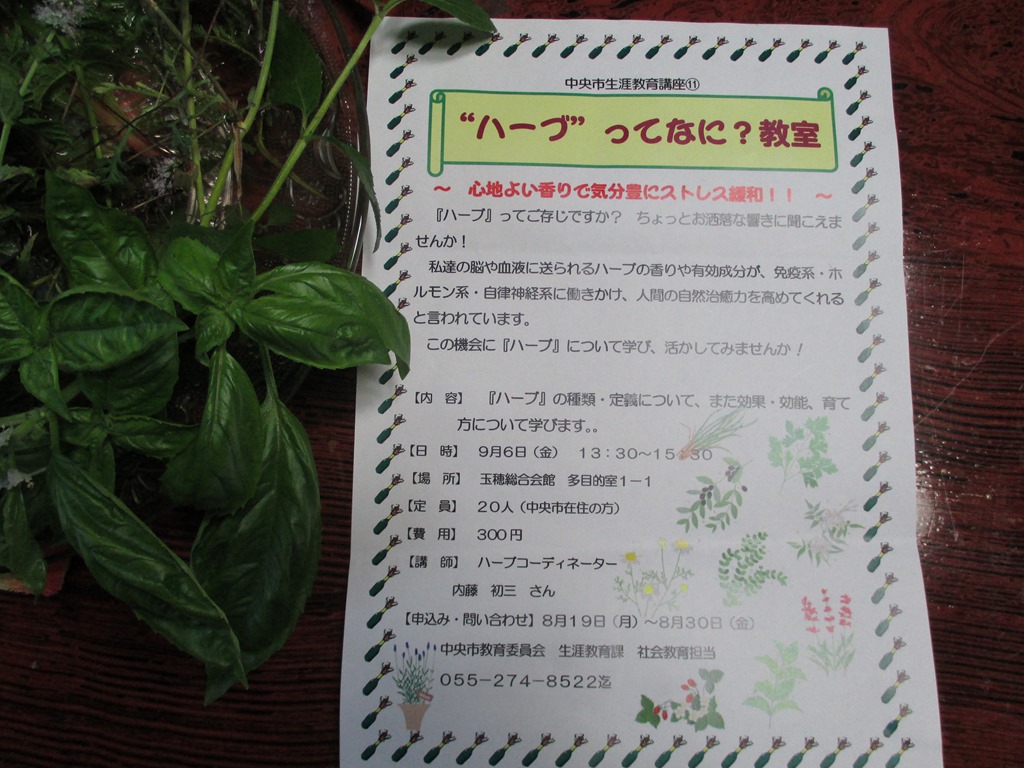 中央市生涯教育講座⑪
“ハーブ”ってなに？教室
～　心地よい香りで気分豊にストレス緩和！！　～
『ハーブ』ってご存じですか？　ちょっとお洒落な響きに聞こえま
せんか！
私達の脳や血液に送られるハーブの香りや有効成分が、免疫系・ホ
ルモン系・自律神経系に働きかけ、人間の自然治癒力を高めてくれる
と言われています。
この機会に『ハーブ』について学び、活かしてみませんか！
【内　容】　『ハーブ』の種類・定義について、また効果・効能、育て
方について学びます。。
【日　時】　9月6日（金）　13：30～15：30
【場　所】　玉穂総合会館　多目的室1－1
【定　員】　20人（中央市在住の方）
【費　用】　300円
【講　師】　ハーブコーディネーター
内藤　初三　さん
【申込み・問い合わせ】8月19日（月）～8月30日（金）
中央市教育委員会　生涯教育課　社会教育担当
055－274－8522迄